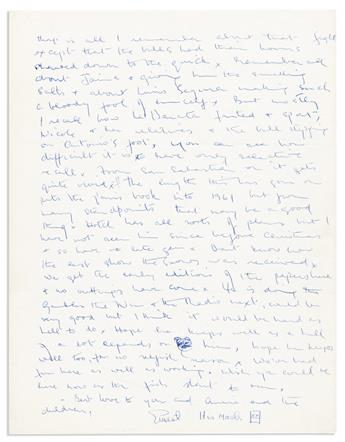 this is all I remember about that fight
except that the bulls had their horns
shaved down to the quick & remember
about Jaime & giving him the smelling
salts & about Luis Segura making such
a bloody fool of himself & But mostly
I recall how la Bonita fainted & spat,
Nicole & her relatives & the bull stepping
on Antonio's foot. You can see how
difficult it is to have only selective
recall. From San Sebastian on it gets
quite vivid. The length this has gone on
puts the book into 1961 but from
many standpoints that may be a good
thing & Hotch has all sorts of plans but I
have not seen him since before Christmas
& so have no late gen & Don't know how
the last show was received &
we get the early edition of the papers here
& no cuttings have come & He is doing the
Gambler, the Nun & the Radio next. Could be
very good but I think it would be hard as
hell to do & Hope he keeps well as a hell
of a lot depends on him, hope he keeps
well too, for no selfish reason & We've had
fun here as well as working. Wish you could be
here now as the fish start to run.
- Best love to you and Annie and the
children,
Ernest